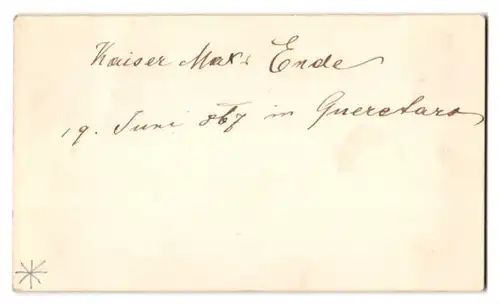 Kaiser Max's Ende
19. Juni 867 in Queretaro